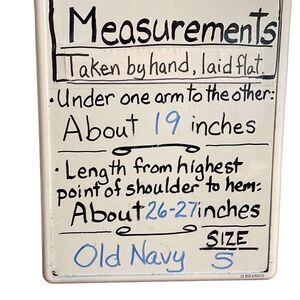 Measurements
Taken by hand, laid flat.
• Under one arm to the other:
About 19 inches
• Length from highest
point of shoulder to hem:
About 26-27 inches
SIZE
Old Navy S
U BRANDS